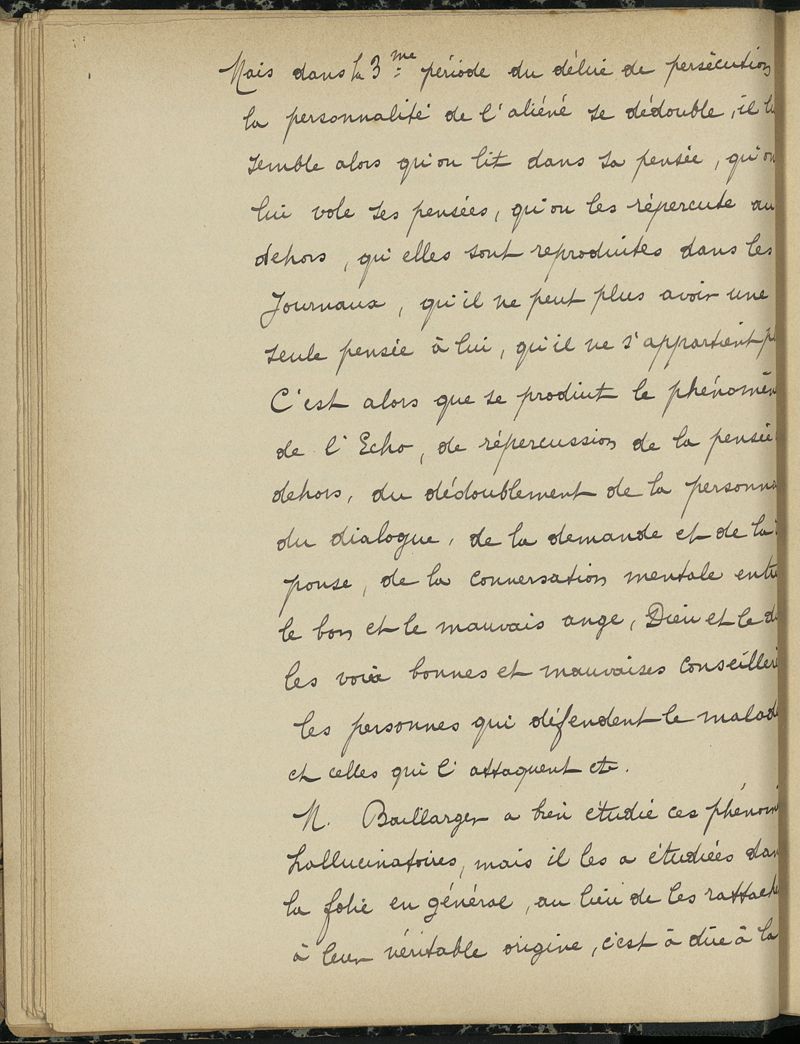 Mais dans la 3me période du délire de persécution
la personnalité de l'aliéné se dédouble, il l
semble alors qu'on lit dans sa pensée, qu'on
lui vole ses pensées, qu'on les répercute au
dehors, qu'elles sont reproduites dans les
Journaux, qu'il ne peut plus avoir une
seule pensée à lui, qu'il ne s'appartient p
C'est alors que se produit le phénomèn
de l'Echo, de répercussion de la pensée
dehors, du dédoublement de la personna
du dialogue, de la demande et de la
ponse, de la conversation mentale entre
le bon et le mauvais ange, Dieu et le d
les voix bonnes et mauvaises conseillèr
les personnes qui défendent le malad
et celles qui l'attaquent etc.
M. Baillarger a bien étudié ces phénom
hallucinatoires, mais il les a étudiées dan
la folie en général, au lieu de les rattach
à leur véritable origine, c'est à dire à la